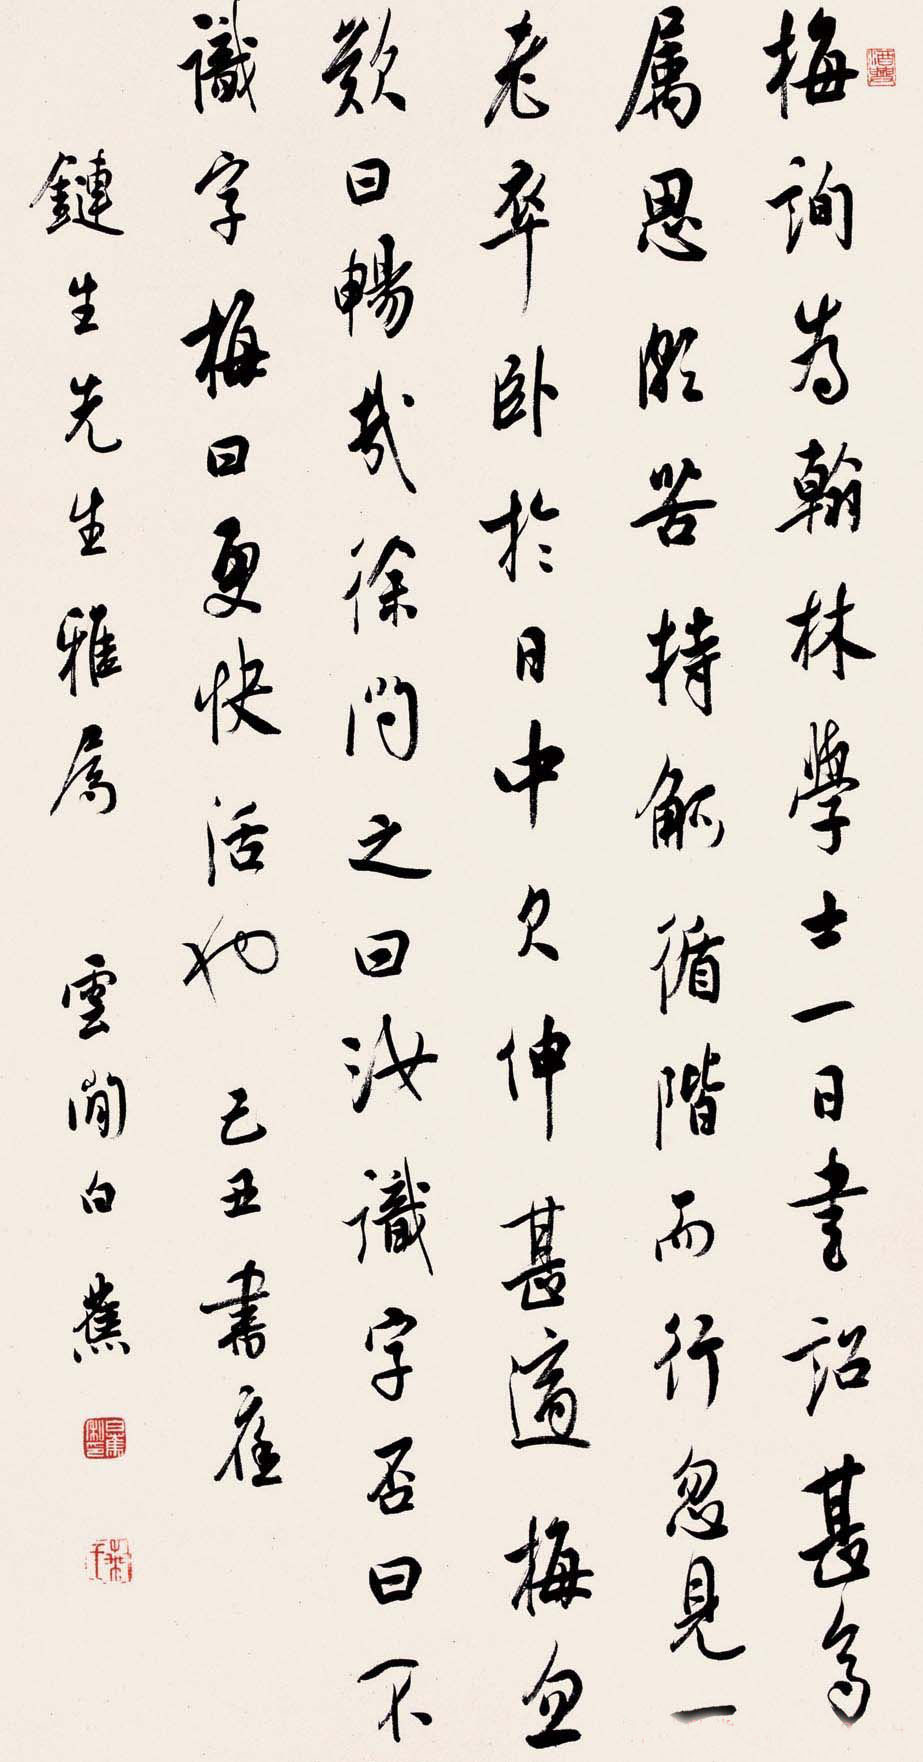 梅詢為翰林學士一日書詔甚多
屬思頗苦持觚循階而行忽見一
老卒臥於日中欠伸甚適梅忽
歎曰暢哉徐問之曰汝識字否曰不
識字梅曰更快活也 己丑書應
鏈生先生雅屬 雲間白蕉